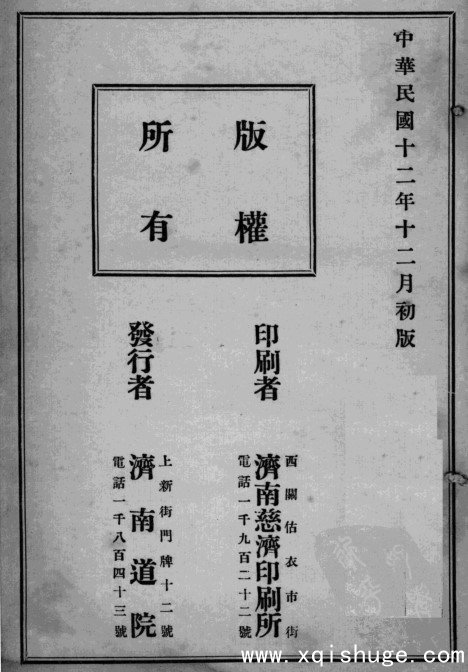 中華民國十二年十二月初版
版權
所有
印刷者
西關估衣市街
濟南慈濟印刷所
電話一千九百二十二號
發行者
上新街門牌十二號
濟南道院
電話一千八百四十三號
www.xqishuge.com